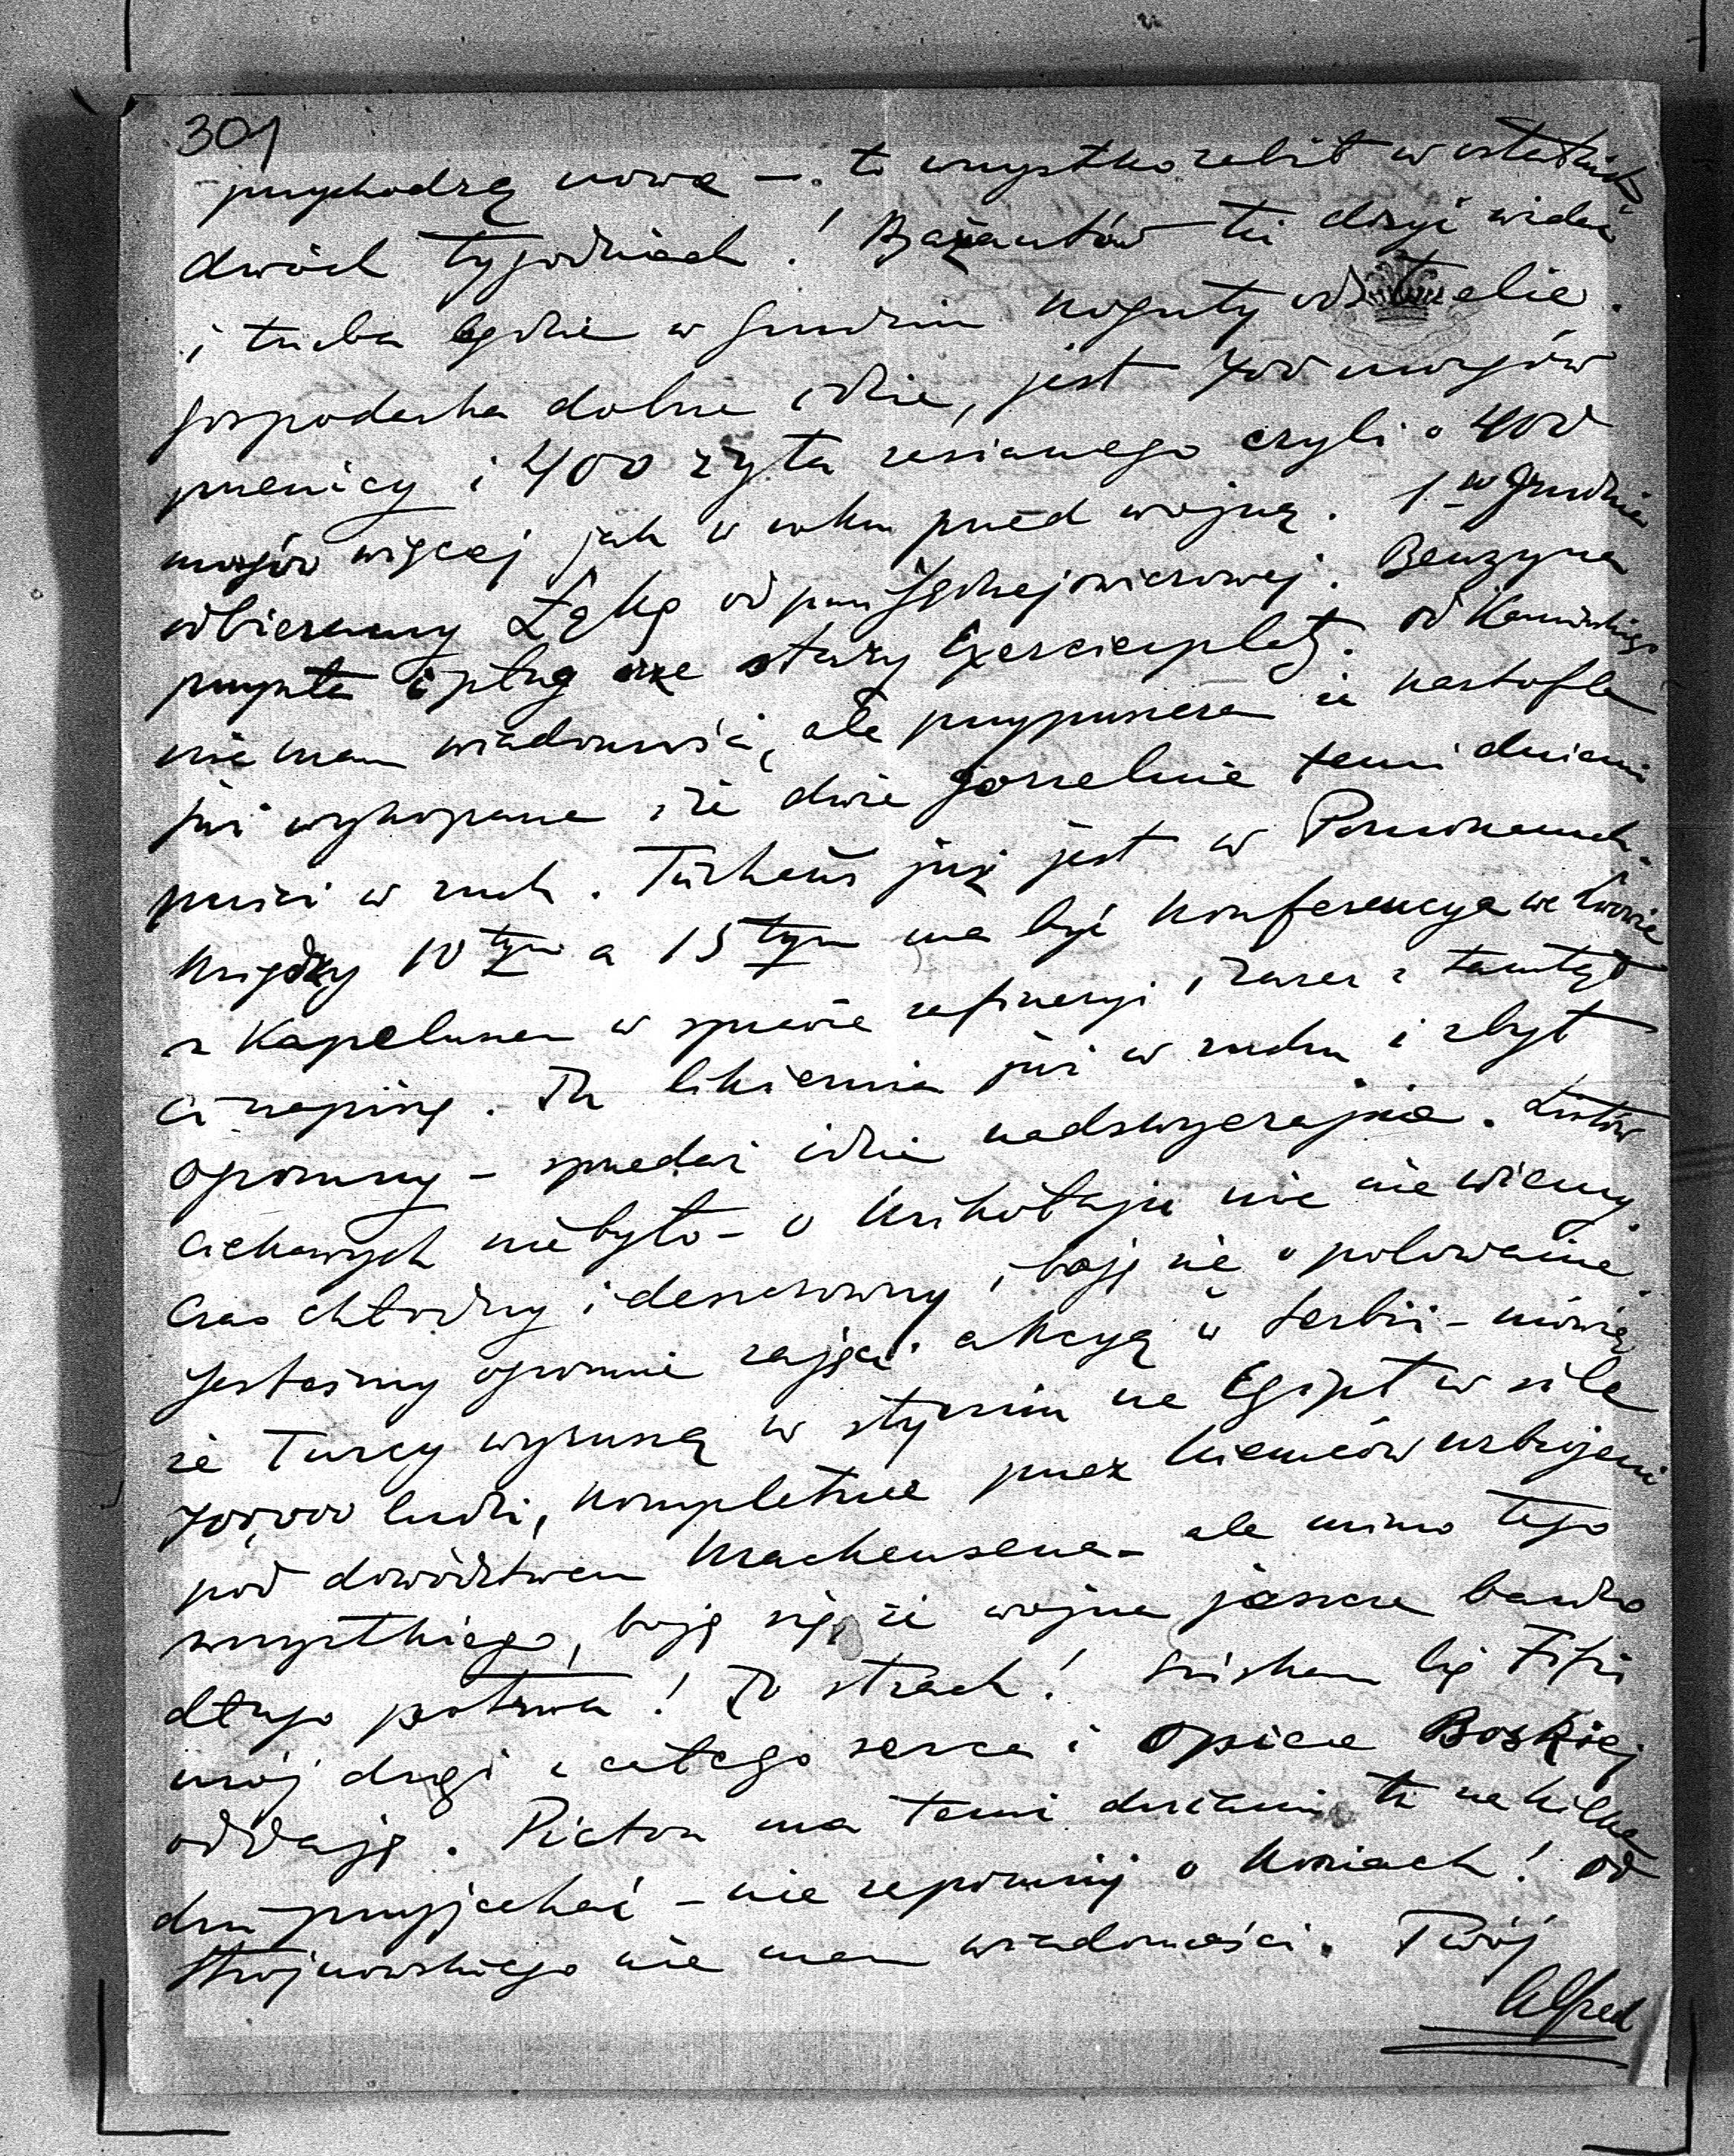 301
przychodzą nowe — to wszystko zebrał w ostatnich
dwóch tygodniach! Bażantów tu dosyć widać
i trzeba będzie w grudniu koguty odstrzelić.
gospodarka dobrze idzie, jest 700 morgów
pszenicy i 400 żyta zasianego czyli o 400
morgów więcej jak w roku przed wojną. 1 w grudniu
odbieramy Łąkę od pani Benzyna
przyszła i pług orze stary Exercierplatz. Od Kamińskiego
nie mam wiadomości, ale przypuszczam że kartofle
już wykopane i że dwie gorzelnie temi dniami
puści w ruch. Turkeus już jest w
między 10 tym a 15 tym ma być konferencya we Lwowie
z Kapeluszem w sprawie rafineryi i zaraz z tamtąd
Ci napiszę. Tu likiernia już w ruchu i zbyt
ogromny – sprzedaż idzie nadzwyczajnie. Listów
ciekawych nie było – o Mikołaju nic nie wiemy.
Czas chłodny i deszczowny, boję się o polowanie.
Jesteśmy ogromnie zajęci akcyą w Serbii – mówią
że Turcy wyruszą w styczniu na Egipt w sile
700,000 ludzi, kompletnie przez Niemców uzbrojeni
pod dowództwem Mackensena – ale mimo tego
wszystkiego, boję się że wojna jeszcze bardzo
długo potrwa! To strach! Ściskam Cię Fifi
mój drogi z całego serca i opiece Boskiej
oddaję. Picton ma temi dniami tu na kilka
dni przyjechać – nie zapomnij o koniach! od
Strojnowskiego nie mam wiadomości. Twój
Alfred